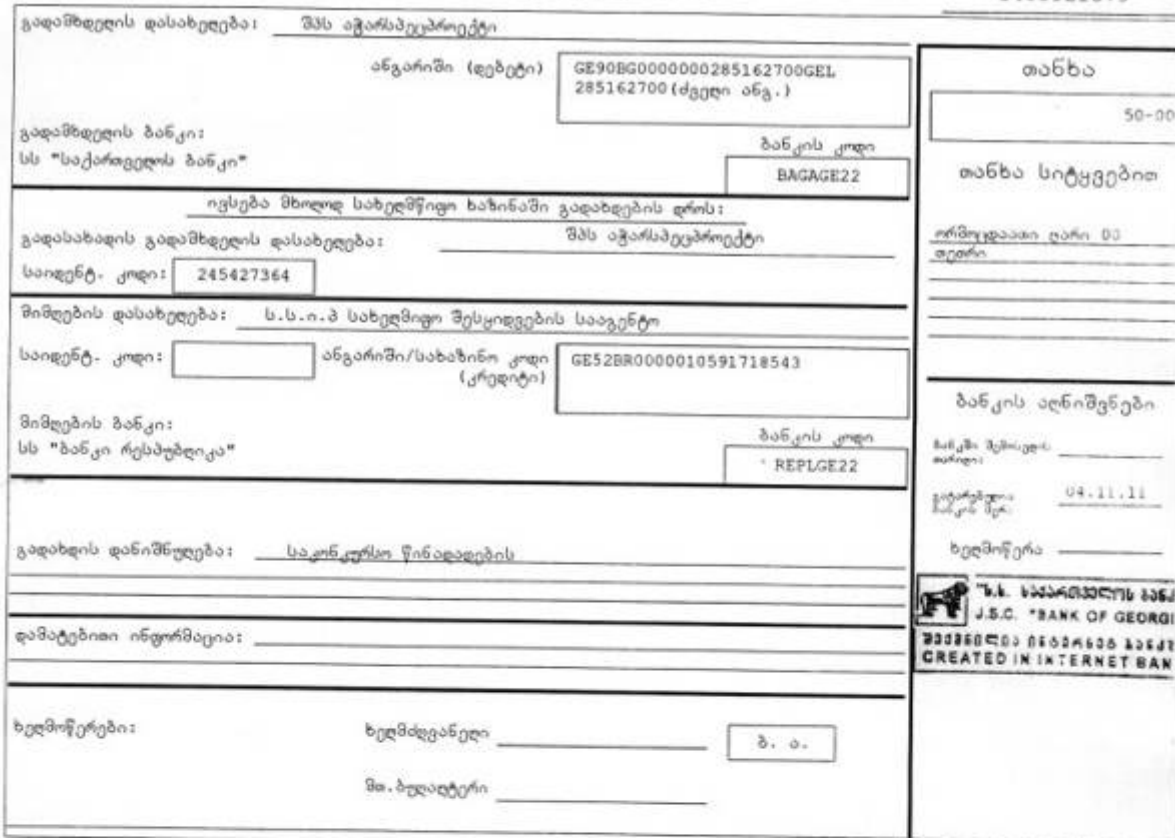 გადამხდელის დასახელება: შპს აჭარსპეცპროექტი
ანგარიში (დებეტი) GE90BG0000000285162700GEL
285162700(ძველი ანგ.)
გადამხდელის ბანკი:
სს "საქართველოს ბანკი"
ბანკის კოდი
BAGAGE22
ივსება მხოლოდ სახელმწიფო ხაზინაში გადახდების დროს:
გადასახადის გადამხდელის დასახელება: შპს აჭარსპეცპროექტი
საიდენტ. კოდი: 245427364
მიმღების დასახელება: ს.ს.ი.პ სახელმიფო შესყიდვების სააგენტო
საიდენტ. კოდი: ანგარიში/სახაზინო კოდი GE52BR0000010591718543
(კრედიტი)
მიმღების ბანკი:
სს "ბანკი რესპუბლიკა"
ბანკის კოდი
REPLGE22
გადახდის დანიშნულება: საკონკურსო წინადადების
დამატებითი ინფორმაცია:
ხელმოწერები: ხელმძღვანელი ბ. ა.
მთ.ბუღალტერი
თანხა
50-00
თანხა სიტყვებით
ორმოცდაათი ლარი 00
თეთრი
ბანკის აღნიშვნები
ბანკში შემოსვლის
თარიღი:
გატარებულია
ბანკის მერ: 04.11.11
ხელმოწერა
ს.ს. საქართველოს ბანკ
J.S.C. "BANK OF GEORGI
შექმნილია ინტერნეტ ბანკ
CREATED IN INTERNET BAN